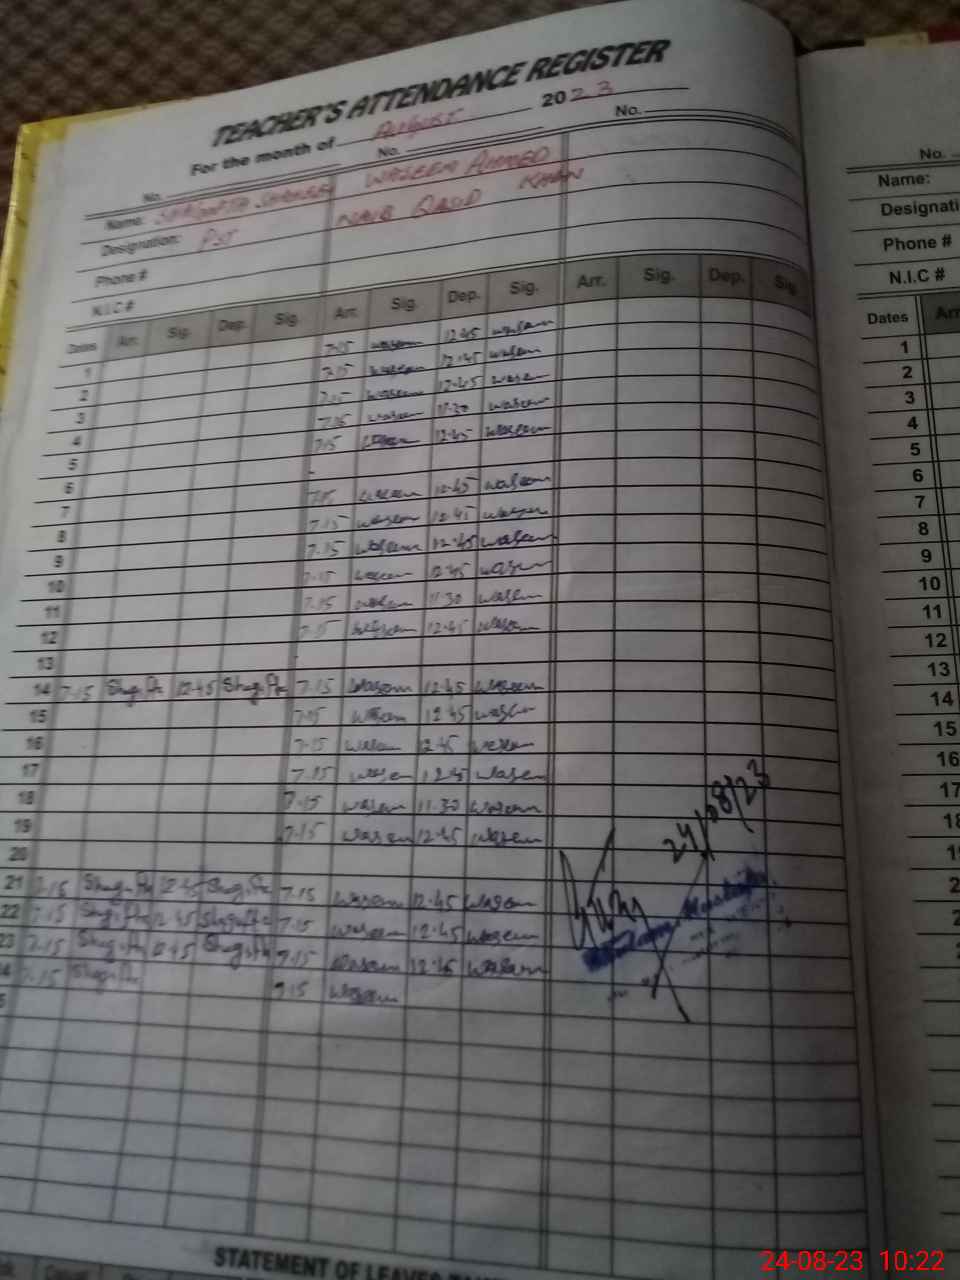 TEACHER'S ATTENDANCE REGISTER
For the month of August 2023
No. No. No.
Name: SHAGUFTA SHAHEEN WASEEM AHMED KHAN
Designation: PST NAIB QASID
Phone #
N.I.C #
Dates Arr. Sig. Dep. Sig. Arr. Sig. Dep. Sig. Arr. Sig. Dep. Sig.
1 7.15 waseem 12.45 waseem
2 7.15 waseem 12.45 waseem
3 7.15 waseem 12.45 waseem
4 7.15 waseem 11.30 waseem
5 7.15 waseem 12.45 waseem
6
7 7.15 waseem 12.45 waseem
8 7.15 waseem 12.45 waseem
9 7.15 waseem 12.45 waseem
10 7.15 waseem 12.45 waseem
11 7.15 waseem 11.30 waseem
12 7.15 waseem 12.45 waseem
13
14 7.15 Shagufta 12.45 Shagufta 7.15 waseem 12.45 waseem
15 7.15 waseem 12.45 waseem
16 7.15 waseem 12.45 waseem
17 7.15 waseem 12.45 waseem
18 7.15 waseem 11.30 waseem
19 7.15 waseem 12.45 waseem
20
21 7.15 Shagufta 12.45 Shagufta 7.15 waseem 12.45 waseem
22 7.15 Shagufta 12.45 Shagufta 7.15 waseem 12.45 waseem
23 7.15 Shagufta 12.45 Shagufta 7.15 waseem 12.45 waseem
7.15 Shagufta 7.15 waseem
24/08/23
STATEMENT OF LEAVES
No.
Name:
Designati
Phone #
N.I.C #
Dates Arr
1
2
3
4
5
6
7
8
9
10
11
12
13
14
15
16
17
18
24-08-23 10:22